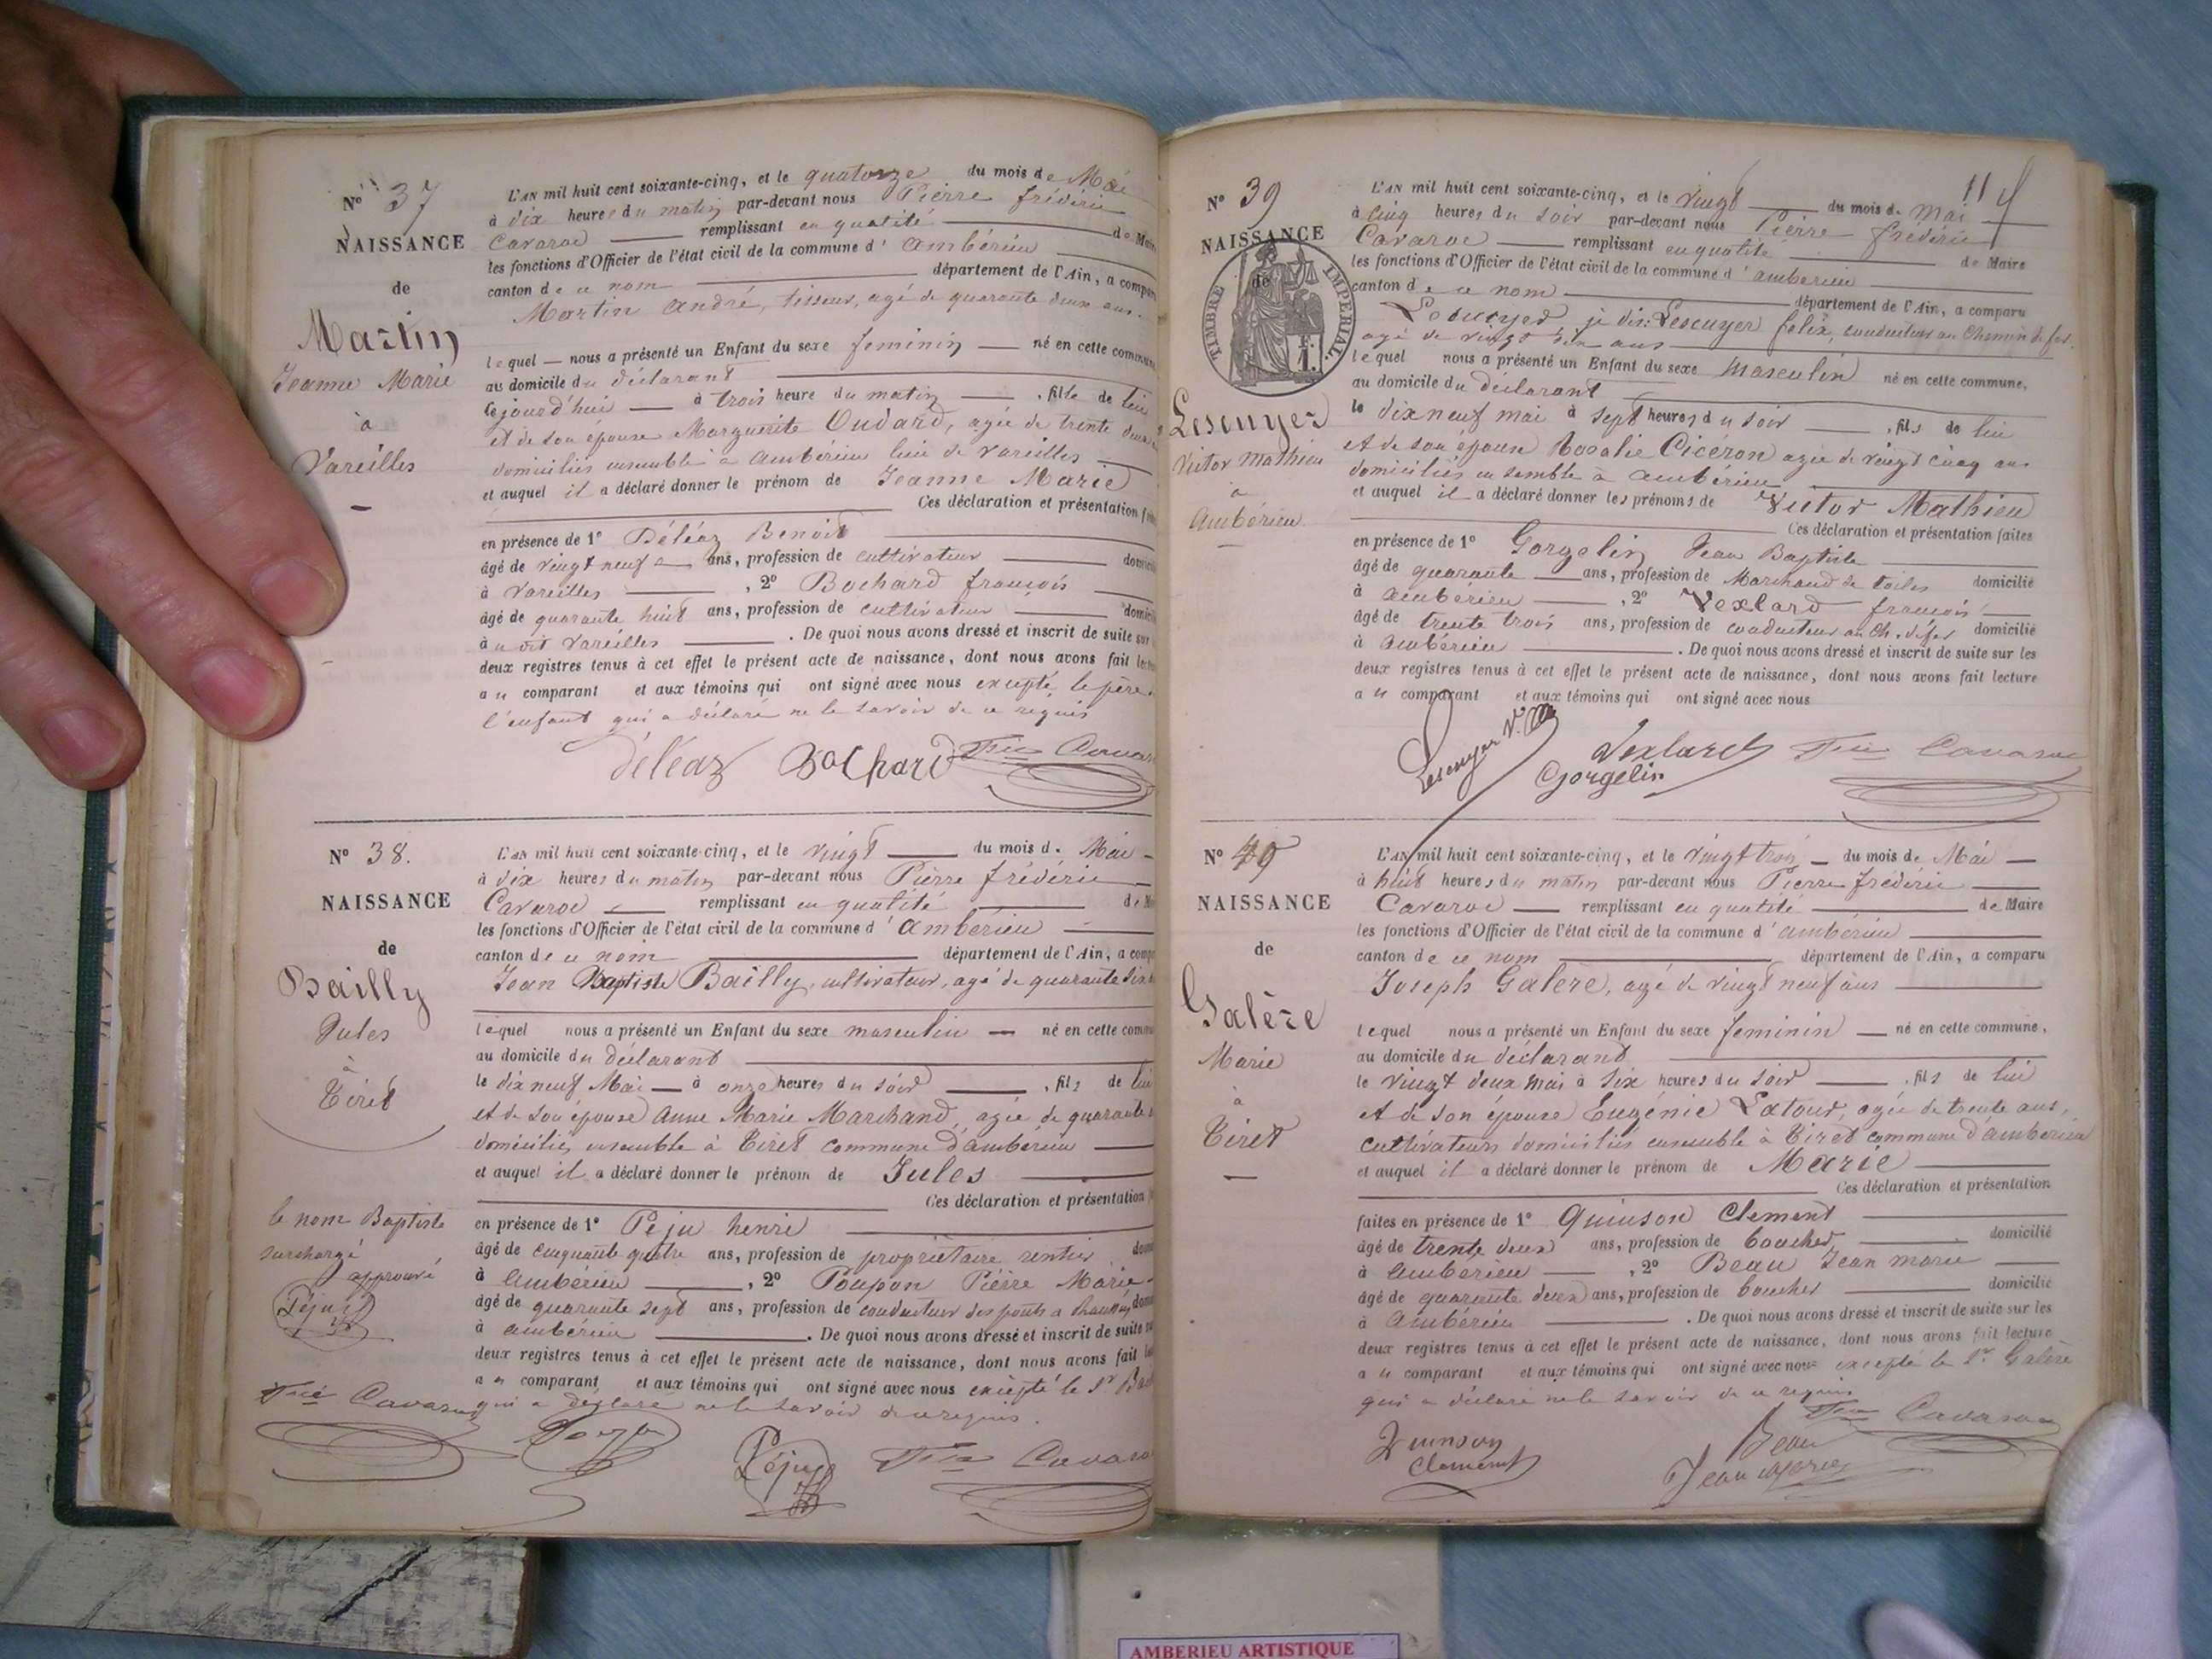 N° 37
NAISSANCE
de
Martin
Jeanne Marie
à
Vareilles
L'AN mil huit cent soixante-cinq, et le quatorze du mois de Mai
à dix heures du matin par-devant nous Pierre frédéric
Cavaroc remplissant en qualité de Maire
les fonctions d'Officier de l'état civil de la commune d'ambérieu
canton de ce nom département de l'Ain, a compar
Martin andré, tisseur, agé de quarante deux ans.
lequel nous a présenté un Enfant du sexe feminin né en cette commune
au domicile du déclarant
cejourd'hui à trois heure du matin , fille de lui
et de son épouse Marguerite Oudard, agée de trente deux
domiciliés ensemble à ambérieu lieu de Vareilles
et auquel il a déclaré donner le prénom de Jeanne Marie
Ces déclaration et présentation
en présence de 1° Déléaz Benoit
âgé de vingt neuf ans, profession de cultivateur domici
à Vareilles , 2° Bochard françois
âgé de quarante huit ans, profession de cultivateur domici
à u dit Vareilles . De quoi nous avons dressé et inscrit de suite sur
deux registres tenus à cet effet le présent acte de naissance, dont nous avons fait lect
au comparant et aux témoins qui ont signé avec nous excepté le père
l'enfant qui a déclaré ne le savoir de ce requis
déléaz Bochard Fric Cavar
N° 38.
NAISSANCE
de
Bailly
Jules
à
Tiret
L'AN mil huit cent soixante-cinq, et le vingt du mois de Mai
à dix heures du matin par-devant nous Pierre frédéric
Cavaroc remplissant en qualité de M
les fonctions d'Officier de l'état civil de la commune d'ambérieu
canton de ce nom département de l'Ain, a comp
Jean Baptiste Bailly, cultivateur, agé de quarante six
lequel nous a présenté un Enfant du sexe masculin né en cette comm
au domicile du déclarant
le dix neuf Mai à onze heures du soir , fils de lui
et de son épouse Anne Marie Marchand, agée de quarante
domiciliés ensemble à Tiret commune d'ambérieu
et auquel il a déclaré donner le prénom de Jules
Ces déclaration et présentation
le nom Baptiste
surchargé
approuvé
Péju
en présence de 1° Péju henri
âgé de cinquante quatre ans, profession de propriétaire rentier dom
à ambérieu , 2° Poupon Pierre Marie
âgé de quarante sept ans, profession de conducteur des ponts a chaussées dom
à ambérieu . De quoi nous avons dressé et inscrit de suite
deux registres tenus à cet effet le présent acte de naissance, dont nous avons fait
au comparant et aux témoins qui ont signé avec nous excepté le Sr
qui a déclaré ne le savoir de ce requis.
Fric Cavaroc
Péju Fric Cavaro
N° 39
NAISSANCE
de
TIMBRE IMPERIAL.
1 F.
Lescuyer
Victor Mathieu
à
Ambérieu
L'AN mil huit cent soixante-cinq, et le vingt du mois de mai
à cinq heures du soir par-devant nous Pierre frédéric
Cavaroc remplissant en qualité de Maire
les fonctions d'Officier de l'état civil de la commune d'ambérieu
canton de ce nom département de l'Ain, a comparu
je dis: Lescuyer felix, conducteur au Chemin de fer,
agé de vingt six ans
lequel nous a présenté un Enfant du sexe masculin né en cette commune,
au domicile du déclarant
le dix neuf mai à sept heures du soir , fils de lui
et de son épouse Rosalie Cicéron agée de vingt cinq ans
domiciliés ensemble à ambérieu
et auquel il a déclaré donner les prénoms de Victor Mathieu
Ces déclaration et présentation faites
en présence de 1° Gorgelin Jean Baptiste
âgé de quarante ans, profession de Marchand de toiles domicilié
à ambérieu , 2° Vexlard françois
âgé de trente trois ans, profession de conducteur au Ch. de fer domicilié
à ambérieu . De quoi nous avons dressé et inscrit de suite sur les
deux registres tenus à cet effet le présent acte de naissance, dont nous avons fait lecture
au comparant et aux témoins qui ont signé avec nous
Lescuyer Vexlard Fric Cavaroc
Gorgelin
N° 40
NAISSANCE
de
Galère
Marie
à
Tiret
L'AN mil huit cent soixante-cinq, et le vingt trois du mois de Mai
à huit heures du matin par-devant nous Pierre frédéric
Cavaroc remplissant en qualité de Maire
les fonctions d'Officier de l'état civil de la commune d'ambérieu
canton de ce nom département de l'Ain, a comparu
Joseph Galère, agé de vingt neuf ans
lequel nous a présenté un Enfant du sexe feminin né en cette commune,
au domicile du déclarant
le vingt deux mai à six heures du soir , fils de lui
et de son épouse Eugénie Latour, agée de trente ans,
cultivateurs domiciliés ensemble à Tiret commune d'ambérieu
et auquel il a déclaré donner le prénom de Marie
Ces déclaration et présentation
faites en présence de 1° Quinson Clement
âgé de trente deux ans, profession de boucher domicilié
à ambérieu , 2° Beau Jean marie
âgé de quarante deux ans, profession de boucher domicilié
à ambérieu . De quoi nous avons dressé et inscrit de suite sur les
deux registres tenus à cet effet le présent acte de naissance, dont nous avons fait lecture
au comparant et aux témoins qui ont signé avec nous excepté le Sr Galère
qui a déclaré ne le savoir de ce requis
Fric Cavaroc
Quinson
Clement
Beau
Jean Marie
AMBERIEU ARTISTIQUE